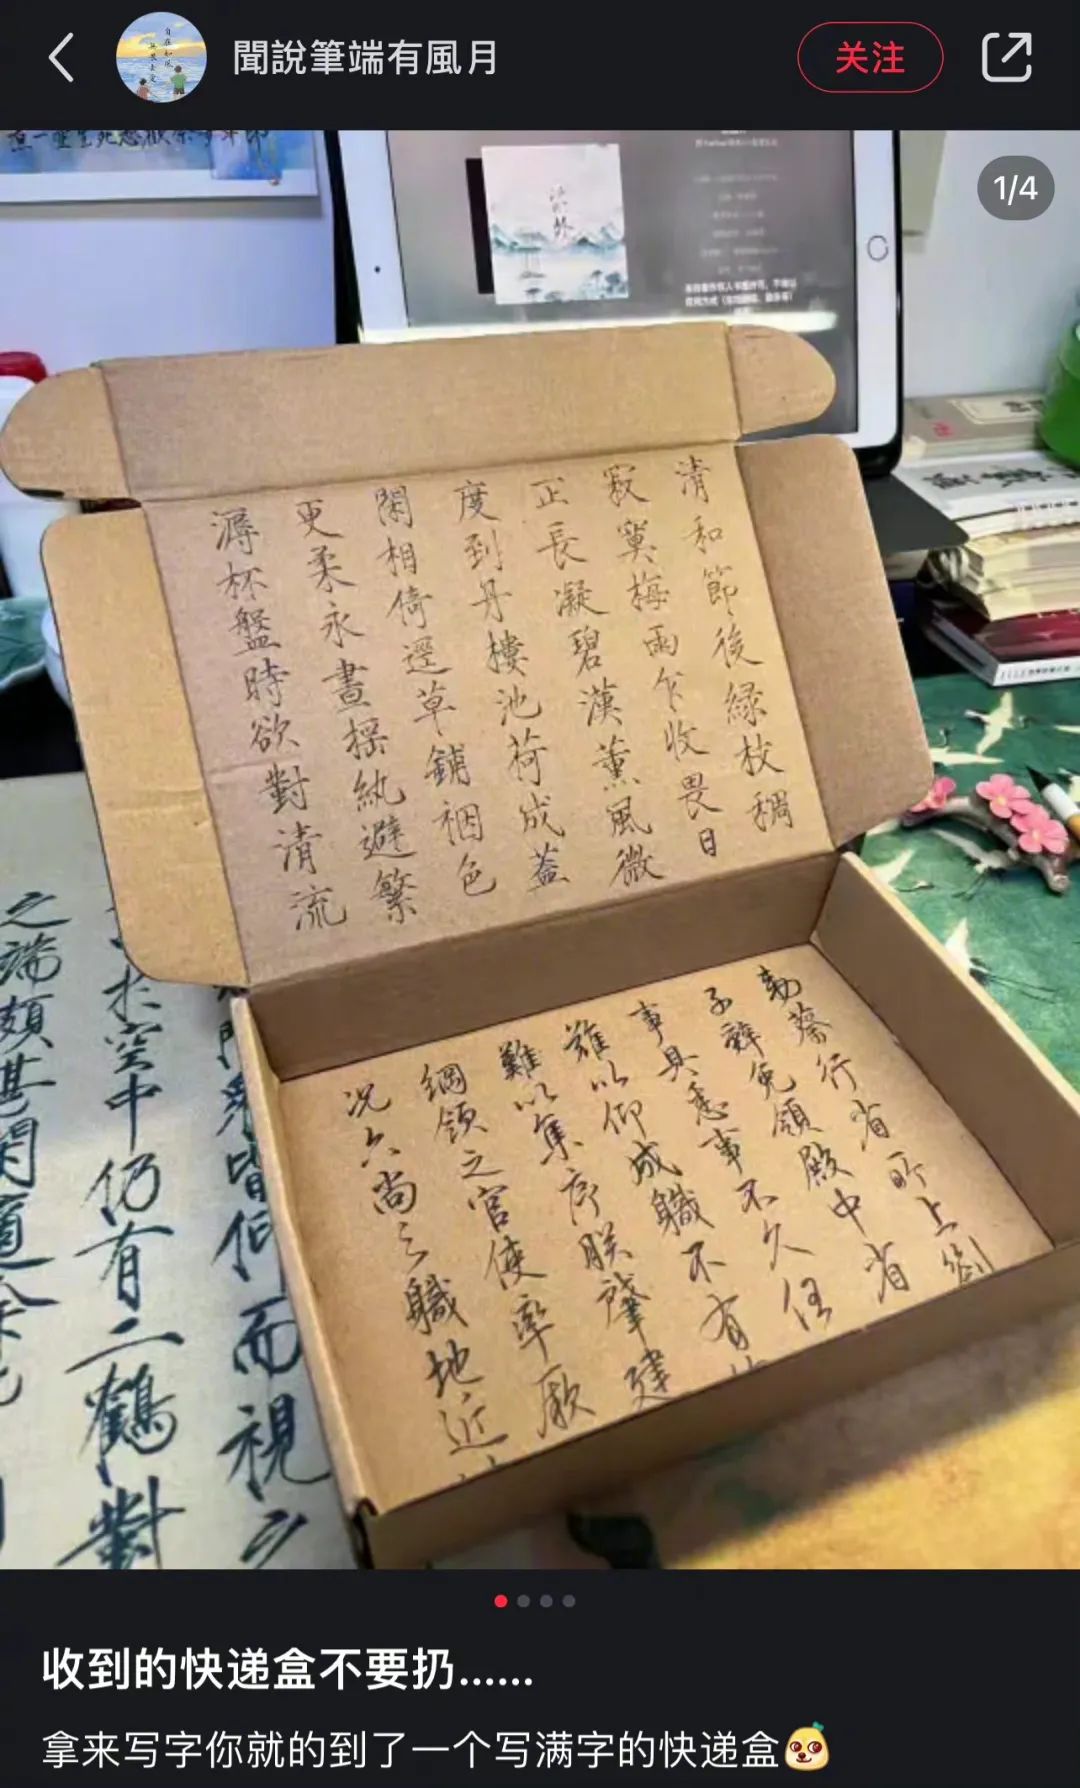 聞說筆端有風月
关注
1/4
清和節後緑枝稠
寂寞梅雨乍收畏日
正長凝碧漢薰風微
度到丹樓池荷成蓋
閑相倚逕草鋪裀色
更柔永晝揺紈避繁
溽杯盤時欲對清流
勅蔡行省所上劄
子辭免領殿中省
事具悉事不久任
難以仰成職不有
難以集序朕肇建
綱領之官使率厥
況六尚之職地近
皆仰而視之
於空中仍有二鶴對
之端頗甚閑適
收到的快递盒不要扔......
拿来写字你就的到了一个写满字的快递盒